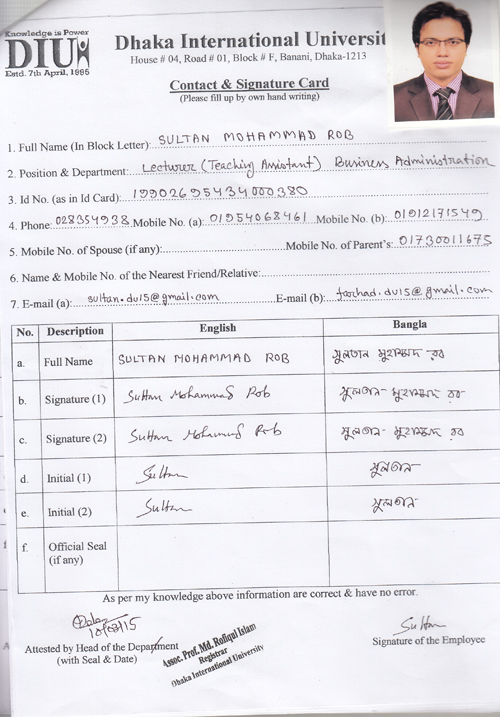 Knowledge is Power
DIU
Estd. 7th April, 1995
Dhaka International Universit
House # 04, Road # 01, Block # F, Banani, Dhaka-1213
Contact & Signature Card
(Please fill up by own hand writing)
1. Full Name (In Block Letter): SULTAN MOHAMMAD ROB
2. Position & Department: Lecturer (Teaching Assistant) Business Administration
3. Id No. (as in Id Card): 19902695434000380
4. Phone: 028354938 Mobile No. (a): 01954068461 Mobile No. (b): 01912171549
5. Mobile No. of Spouse (if any): Mobile No. of Parent's: 01730011675
6. Name & Mobile No. of the Nearest Friend/Relative:
7. E-mail (a): sultan.du15@gmail.com E-mail (b): farhad.du15@gmail.com
No. Description English Bangla
a. Full Name SULTAN MOHAMMAD ROB সুলতান মুহাম্মদ রব
b. Signature (1) Sultan Mohammad Rob সুলতান মুহাম্মদ রব
c. Signature (2) Sultan Mohammad Rob সুলতান মুহাম্মদ রব
d. Initial (1) Sultan সুলতান
e. Initial (2) Sultan সুলতান
f. Official Seal
(if any)
As per my knowledge above information are correct & have no error.
Attested by Head of the Department
(with Seal & Date)
Assoc. Prof. Md. Rofiqul Islam
Registrar
Dhaka International University
Sultan
Signature of the Employee